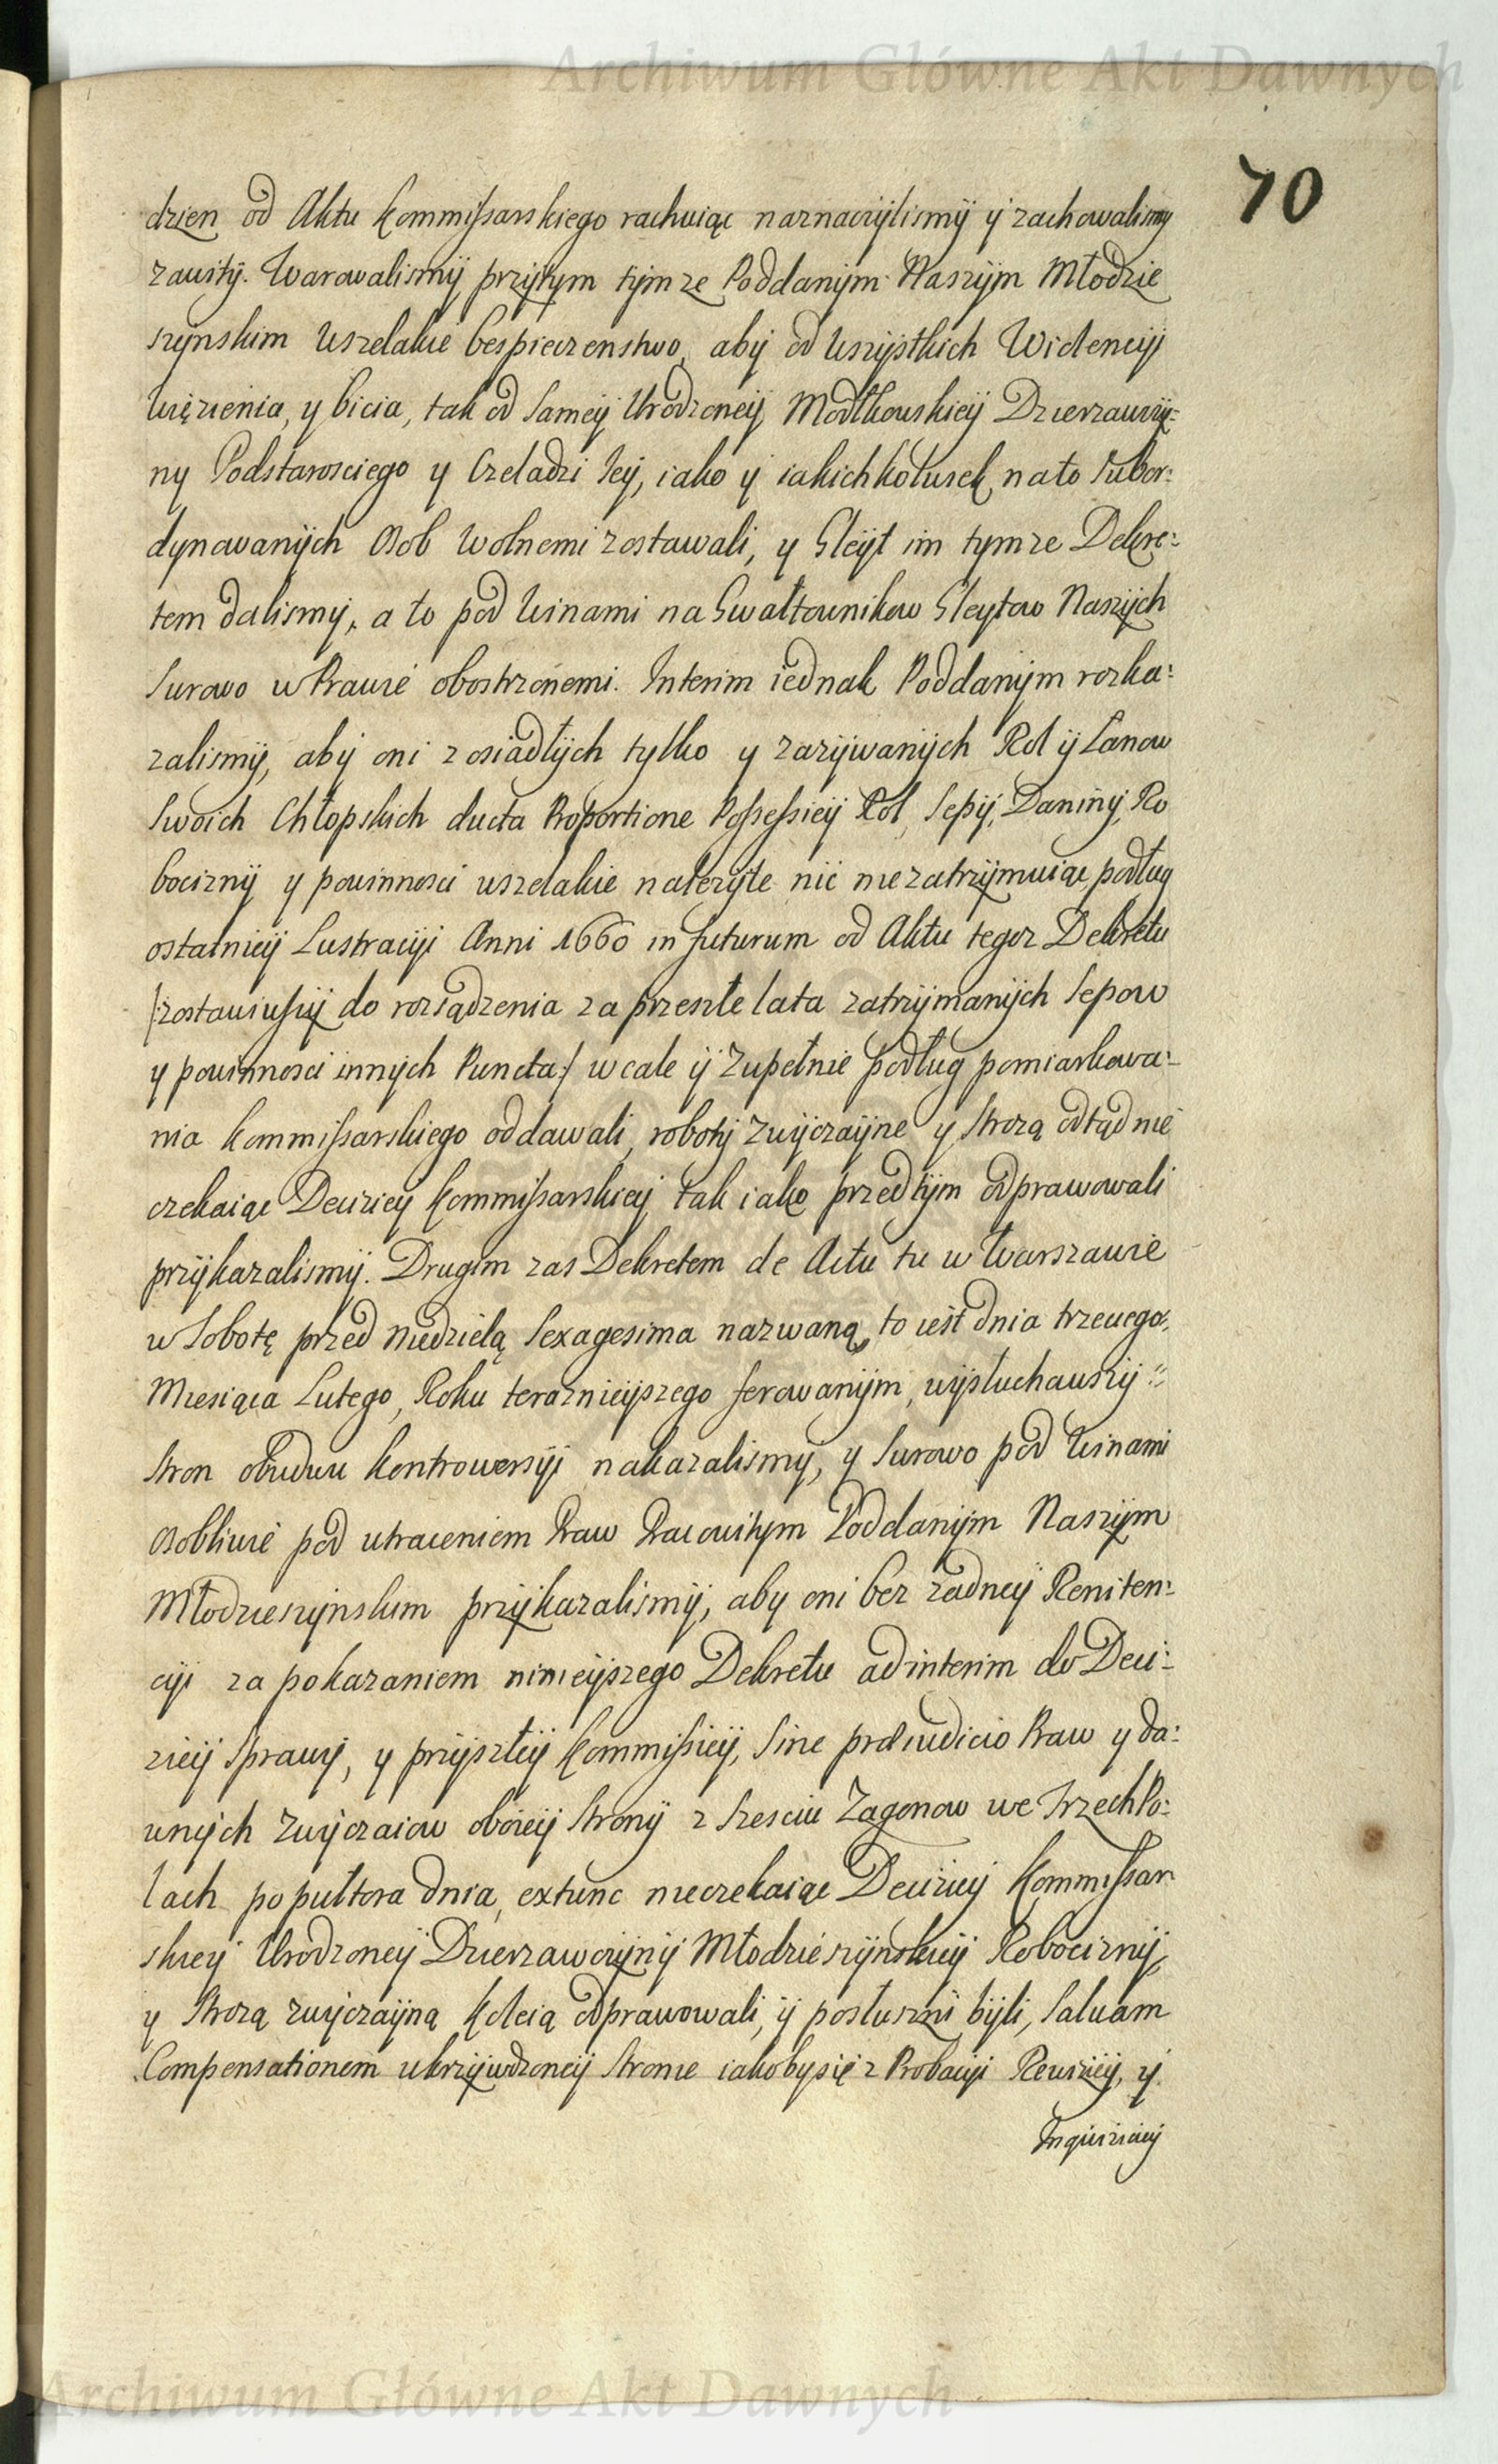 Archiwum Główne Akt Dawnych
70
dzien od Aktu Kommissarskiego rachuiąc naznaczylismy y zachowalismy
zawity. Warowalismy przytym tymze Poddanym Naszym Młodzie
szynskim wszelakie bespieczenstwo, aby od wszystkich Wiolencyi
więzienia, y bicia, tak od samey Urodzoney Modlkowskiey Dzierzawczy:
ny Podstarosciego y Czeladzi Iey, iako y iakichkolusek na to subor:
dynowanych Osob wolnemi zostawali, y Gleyt im tymze Dekre:
tem dalismy, a to pod winami na Gwałtownikow Gleytow Naszych
surowo w Prawie obostrzonemi. Interim iednak Poddanym rozka:
zalismy, aby oni z osiadłych tylko y zazywanych Rol y Łanow
swoich Chłopskich ducta Proportione Possessiey Rol, Sepy, Daniny, Ro
bocizny y powinnosci wszelakie nalezyte nic nie zatrzymuiąc podług
ostatniey Lustracyi Anni 1660 in futurum od Aktu tegoz Dekretu
/:zostawiwszy do rozsądzenia za przeszłe lata zatrzymanych Sepow
y powinnosci innych Puncta:/ wcale y zupełnie podług pomiarkowa:
nia Kommissarskiego oddawali, roboty zwyczayne y Strozą odtąd nie
czekaiąc Decyziey Kommissarskiey tak iako przedtym odprawowali
przykazalismy. Drugim zas Dekretem de Actu tu w Warszawie
w Sobotę przed Niedzielą Sexagesima nazwaną, to iest dnia trzeciego
Miesiąca Lutego, Roku teraznieyszego ferowanym, wysłuchawszy
stron obudwu kontrowersyi nakazalismy, y surowo pod winami
osobliwie pod utraceniem Praw Pracowitym Poddanym Naszym
Młodzieszynskim przykazalismy, aby oni bez zadney Reniten:
cyi za pokazaniem ninieyszego Dekretu ad interim do Decy:
ziey Sprawy, y przyszłey Kommissiey, sine præiudicio Praw y da:
wnych zwyczaiow oboiey Strony z szesciu Zagonow we trzech Po:
lach po pułtora dnia, extunc nieczekaiąc Decyziey Kommissar
skiey Urodzoney Dzierzawczyny Młodzieszynskiey Robocizny,
y Strozą zwyczayną koleią odprawowali, y posłuszni byli, salvam
Compensationem ukrzywdzoney Stronie iakoby się z Probacyi Rewiziey, y
Inquiziciey
Archiwum Główne Akt Dawnych